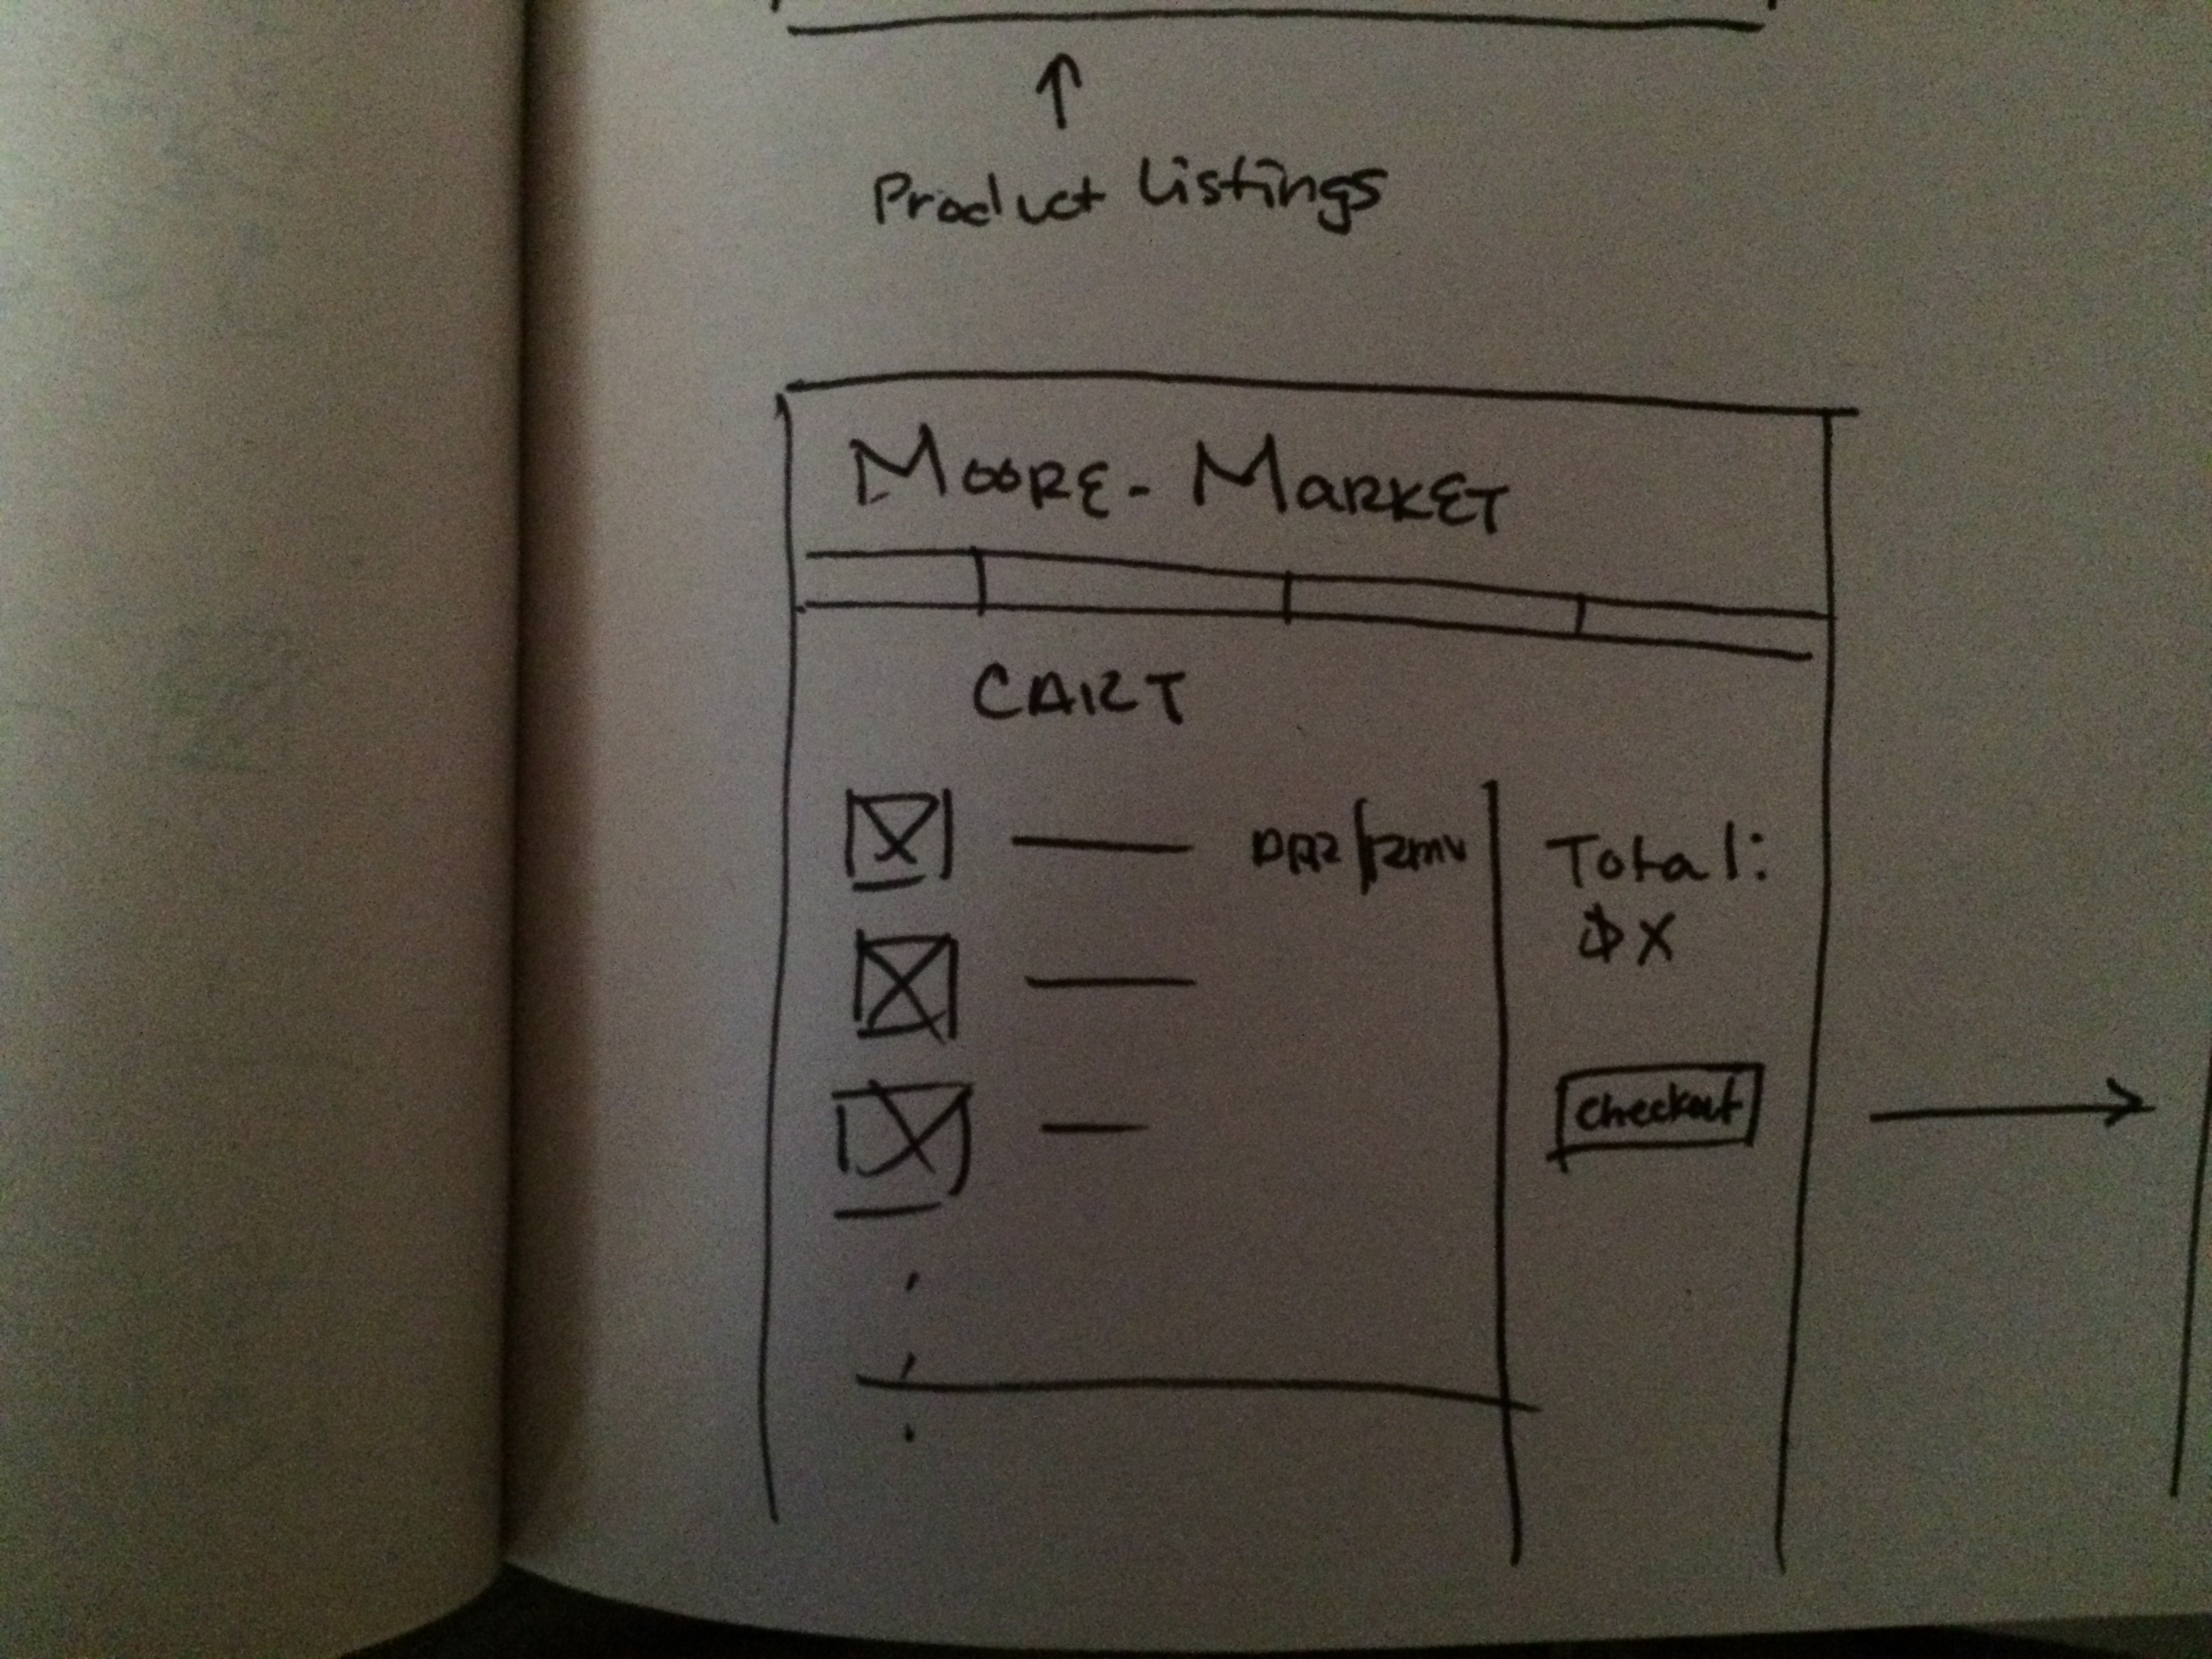 Product Listings
MOORE-MARKET
CART
Total:
$X
Checkout